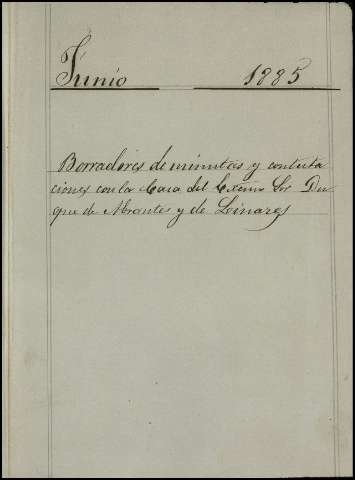 Junio 1885
Borradores de minutas y contesta
ciones con la Casa del Excmo Sor Du
que de Abrantes y de Linares